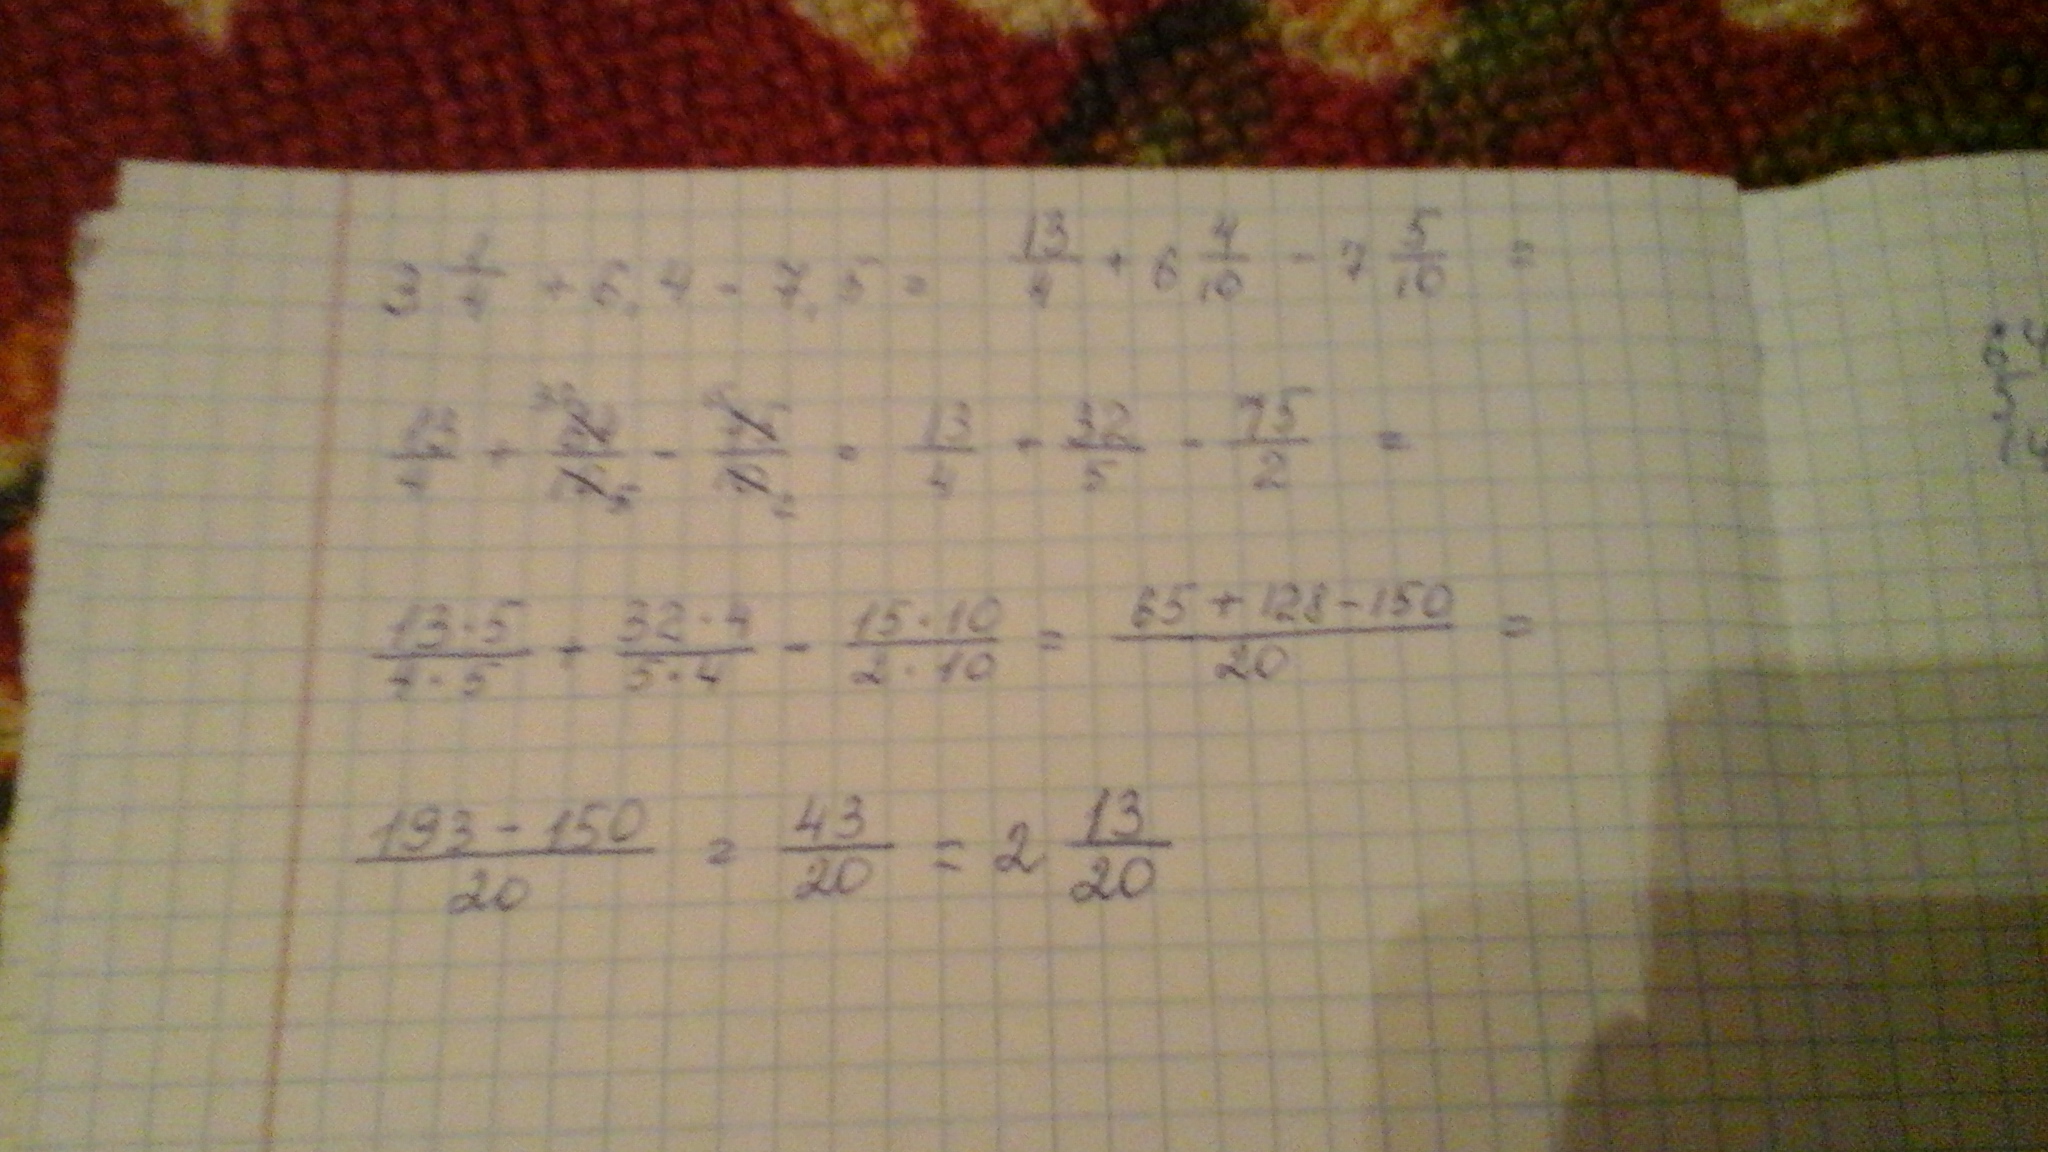 3 1/4 + 6,4 - 7,5 = 13/4 + 6 4/10 - 7 5/10 =
13/4 + 64/10 - 75/10 = 13/4 + 32/5 - 75/2 =
13·5/4·5 + 32·4/5·4 - 15·10/2·10 = 65+128-150/20 =
193-150/20 = 43/20 = 2 13/20